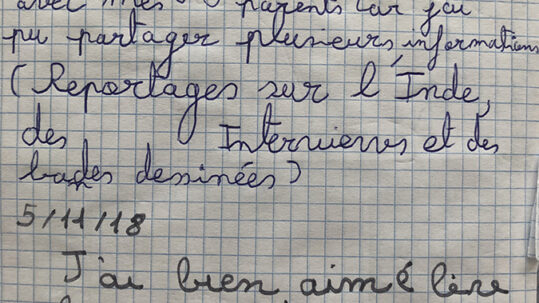 avec mes parents car j'ai
pu partager plusieurs informations
(Reportages sur l'Inde,
des Interviews et des
bandes dessinées)
5/11/18
J'ai bien aimé lire